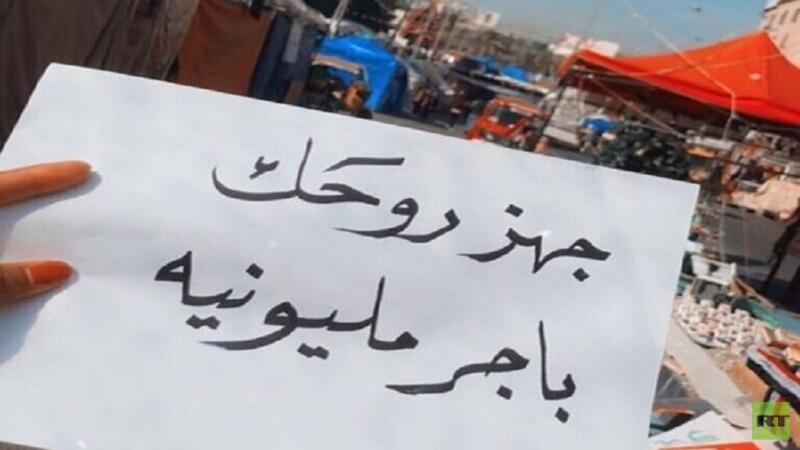 جهز روحك
باجر مليونيه
RT